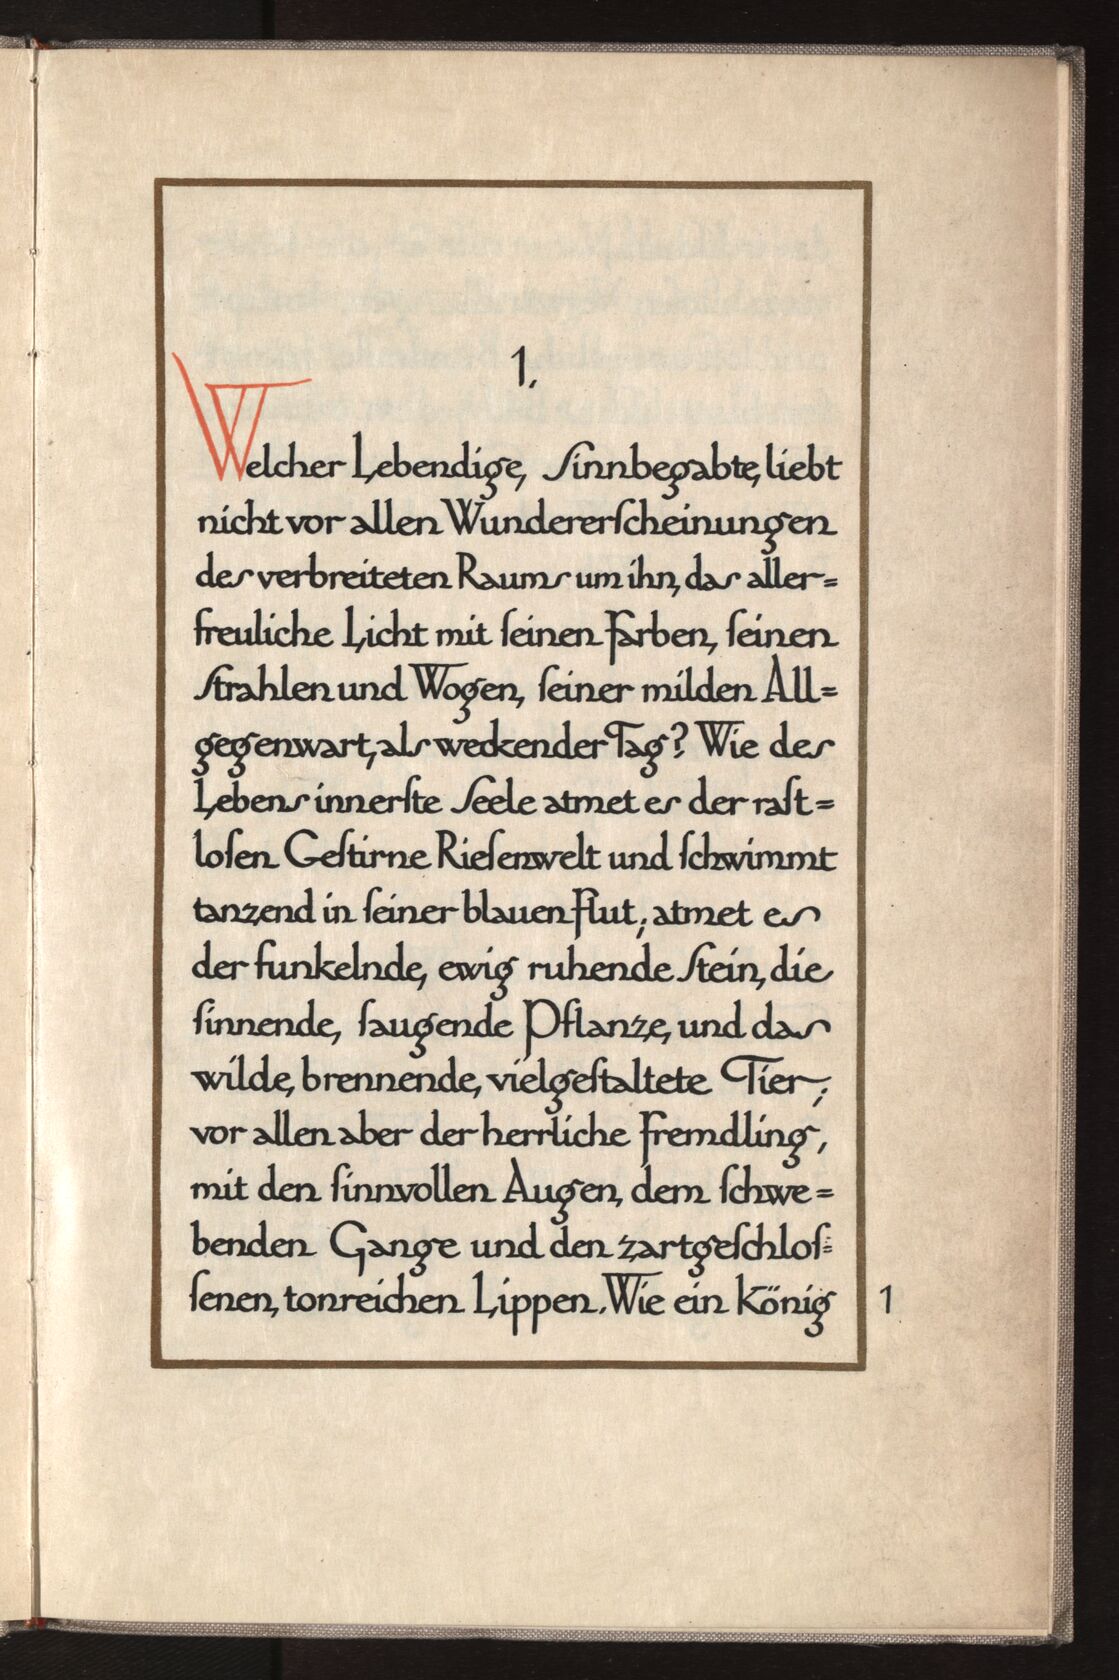 1.
Welcher Lebendige, Sinnbegabte, liebt
nicht vor allen Wundererſcheinungen
des verbreiteten Raums um ihn, das aller=
freuliche Licht mit ſeinen Farben, ſeinen
Strahlen und Wogen, ſeiner milden All=
gegenwart, als weckender Tag? Wie des
Lebens innerſte Seele atmet es der raſt=
loſen Geſtirne Rieſenwelt und ſchwimmt
tanzend in ſeiner blauen Flut; atmet es
der funkelnde, ewig ruhende Stein, die
ſinnende, ſaugende Pflanze, und das
wilde, brennende, vielgeſtaltete Tier;
vor allen aber der herrliche Fremdling,
mit den ſinnvollen Augen, dem ſchwe=
benden Gange und den zartgeſchloſ=
ſenen, tonreichen Lippen. Wie ein König
1